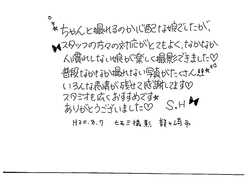 ちゃんと撮れるのか心配な娘でしたが、
スタッフの方々の対応がとてもよく、なかなか
人慣れしない娘が楽しく撮影できました♡
普段なかなか撮れない写真がたくさん!!
いろんな表情が残せて感謝してます
スタジオも広くおすすめです
ありがとうございました♡ S.H
H30.8.7 七五三撮影 龍ヶ崎市